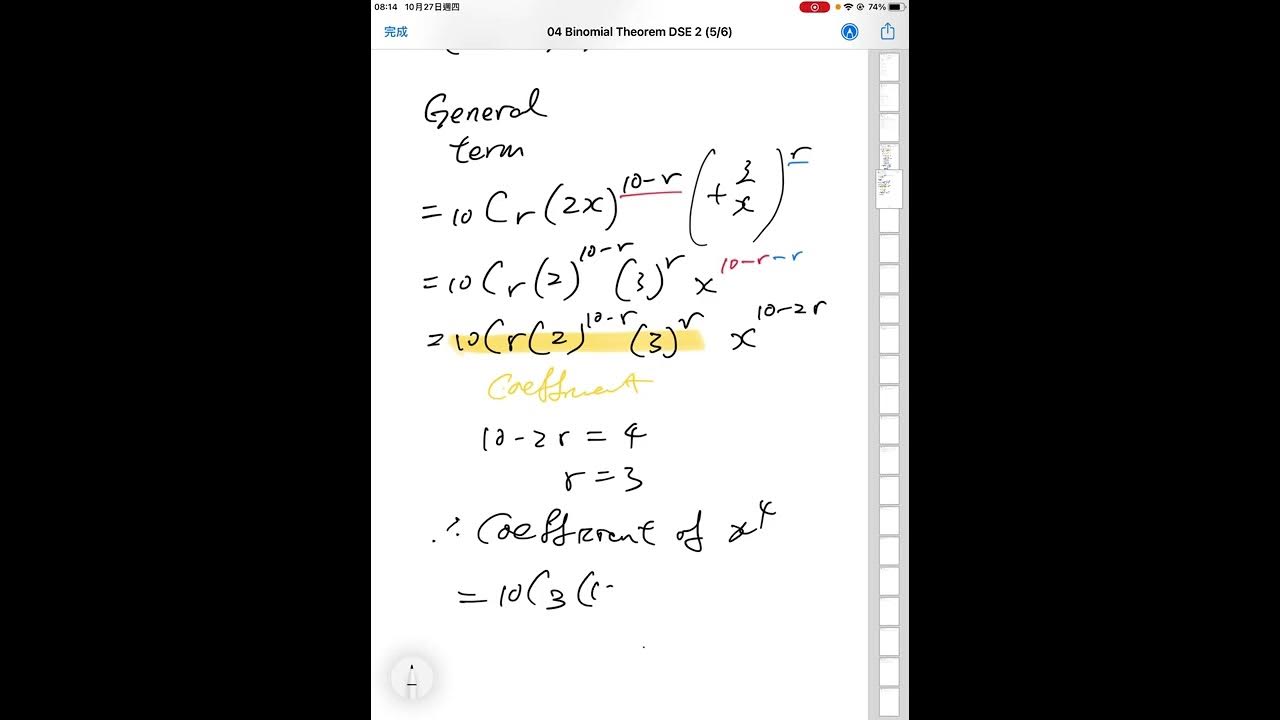 08:14 10月27日週四 74%
完成 04 Binomial Theorem DSE 2 (5/6)
General
term
= 10 C r (2x)^10-r (+ 3/x)^r
= 10 C r (2)^10-r (3)^r x^10-r-r
= 10 C r (2)^10-r (3)^r x^10-2r
Coefficient
10 - 2r = 4
r = 3
∴ Coefficient of x^4
= 10 C 3 (